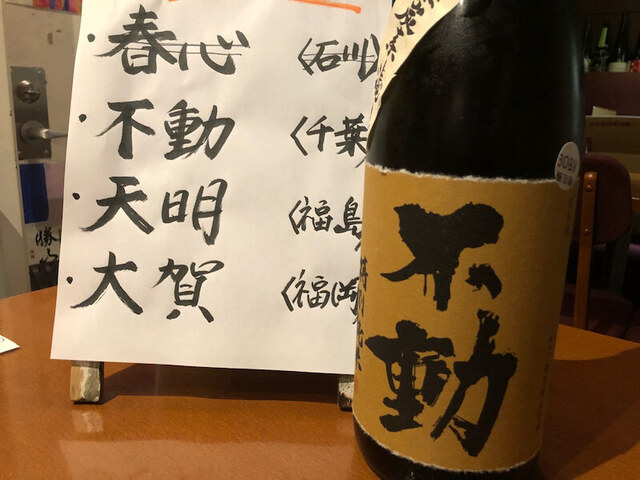 春心 〈石川〉
不動 〈千葉
天明 〈福島
大賀 〈福岡
不動